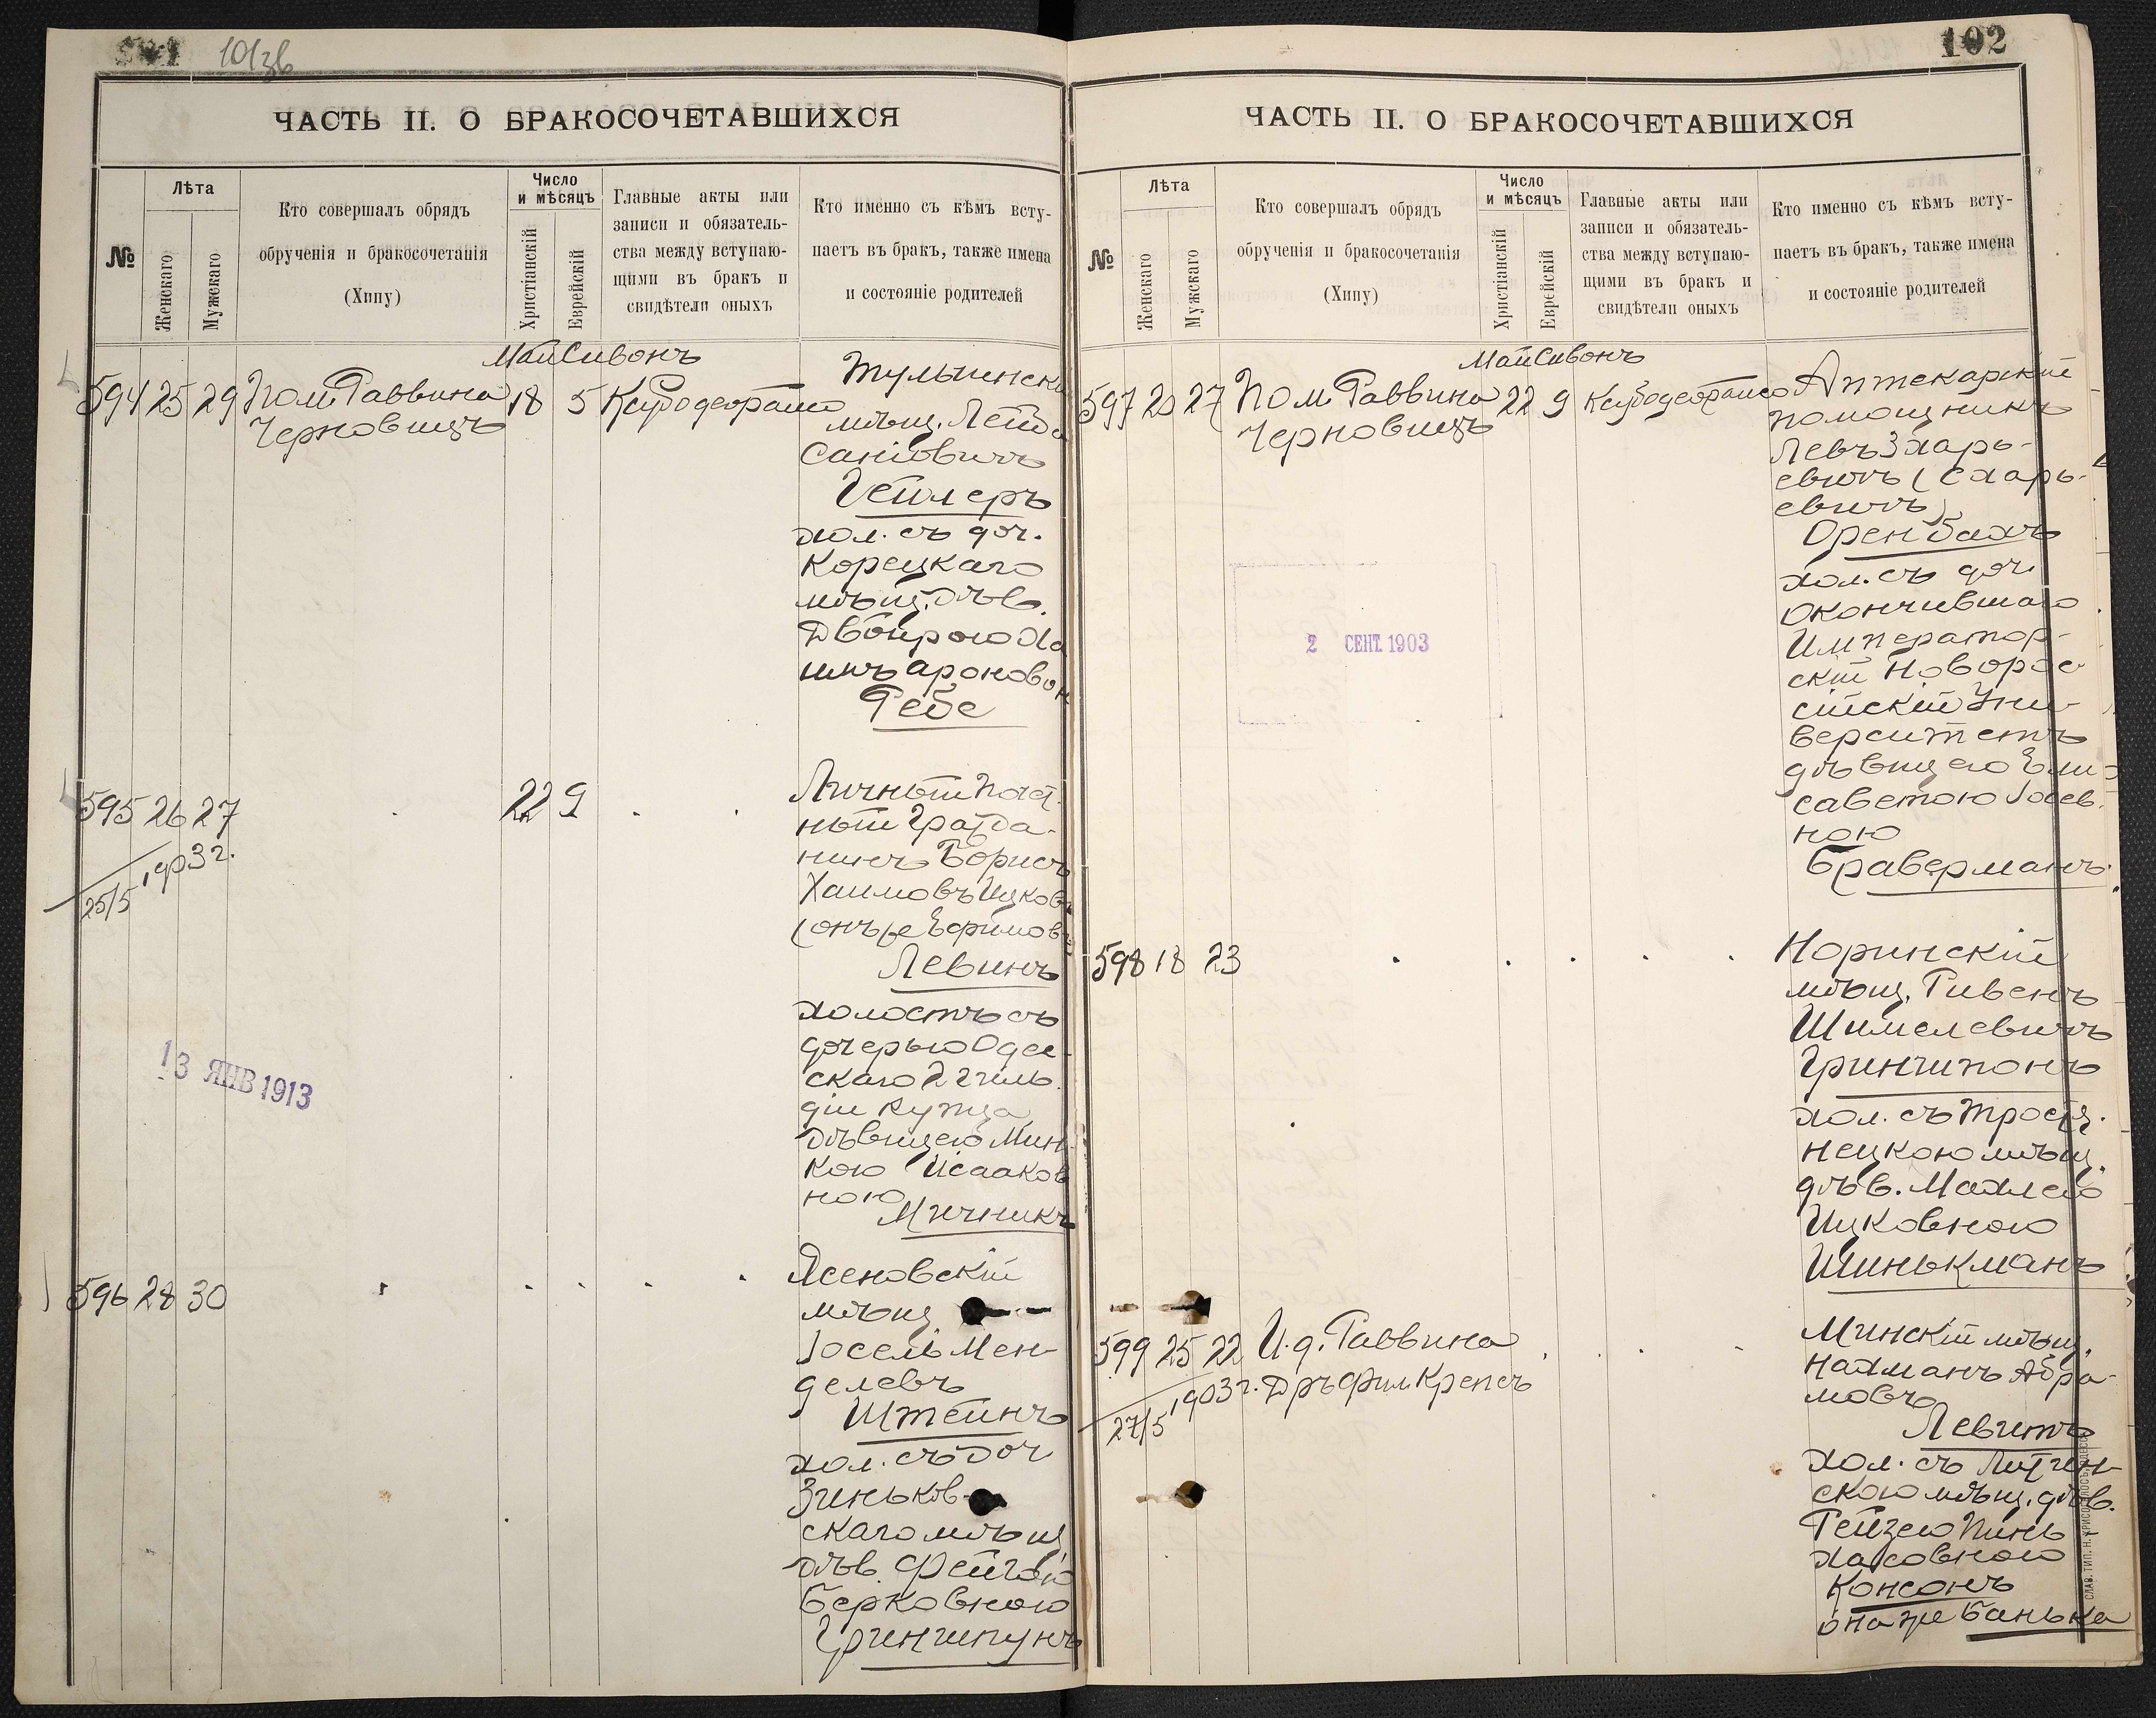 101 101зв
ЧАСТЬ II. О БРАКОСОЧЕТАВШИХСЯ
№
Лѣта
Женскаго
Мужскаго
Кто совершалъ обрядъ
обрученія и бракосочетанія
(Хипу)
Число
и мѣсяцъ
Христіанскій
Еврейскій
Главные акты или
записи и обязатель-
ства между вступаю-
щими въ бракъ и
свидѣтели оныхъ
Кто именно съ кѣмъ всту-
паетъ въ бракъ, также имена
и состояніе родителей
Май Сивонъ
594 25 29 Пом. Раввина 18 5
Черновицъ
мѣщ.
Гейлеръ
хол. съ доч.
Корецкаго
мѣщ. дѣв.
Двойрою Ха
Ароновой
Ребе
595 26 27 22 9
25/5 1903 г.
Личный поч.
ный гражда-
нинъ Борисъ
Хаимовъ Ицковъ
(онъ же Ефимовъ
Левинъ
холостъ съ
дочерью Одес-
скаго 2 гиль-
діи купца
дѣвицею Мин-
кою Исааков
ною
Мичникъ
13 ЯНВ 1913
596 28 30
Ясеновскій
мѣщ.
Іосель Мен-
делевъ
Штейнъ
хол. съ доч
Зиньков-
скаго мѣщ
дѣв. Фейгою
Берковною
Гриншпунъ
102
ЧАСТЬ II. О БРАКОСОЧЕТАВШИХСЯ
№
Лѣта
Женскаго
Мужскаго
Кто совершалъ обрядъ
обрученія и бракосочетанія
(Хипу)
Число
и мѣсяцъ
Христіанскій
Еврейскій
Главные акты или
записи и обязатель-
ства между вступаю-
щими въ бракъ и
свидѣтели оныхъ
Кто именно съ кѣмъ всту-
паетъ въ бракъ, также имена
и состояніе родителей
Май Сивонъ
597 20 27 Пом. Раввина 22 9
Черновицъ
Аптекарскій
помощникъ
Левъ Зхарь-
евичъ (Схарь-
евичъ)
Оренбахъ
хол. съ доч
окончившаго
Император-
скій Новорос
сійскій Уни-
верситетъ
дѣвицею Ели
саветою Іосев.
ною
Браверманъ
2 СЕНТ. 1903
598 18 23
Норинскій
мѣщ. Ривенъ
Шимелевичъ
Гриншпонъ
хол. съ Тростя.
нецкою мѣщ.
дѣв. Махлею
Ицковною
Шинькманъ
599 25 22 И. д. Раввина
27/5 1903 г. Дръ Фил. Крепсъ
Минскій мѣщ.
Нахманъ Абра-
мовъ
Левитъ
хол. съ
скою мѣщ. дѣв.
Рейзею Пинь
хасовною
Консонъ
она же Банька
СЛАВ. ТИП. Н. ХРИСОГЕЛОСЪ, ОДЕССА